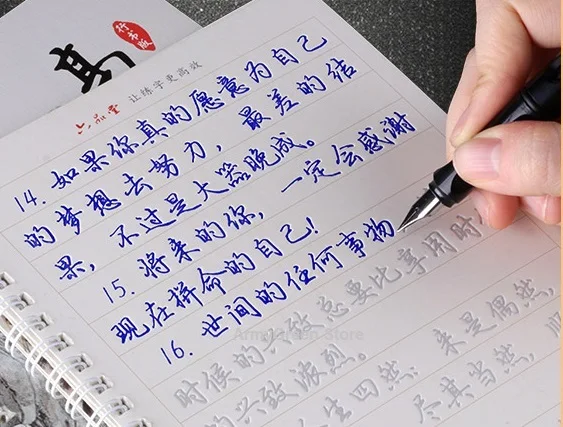 行书版
六品堂 让练字更高效
14. 如果你真的愿意为自己
的梦想去努力，最差的结
果，不过是大器晚成。
15. 将来的你，一定会感谢
现在拼命的自己！
16. 世间的任何事物
总要比享用时
时候的兴致
的兴致浓烈。来是偶然，
尽其当然，顺
Armgarden Store